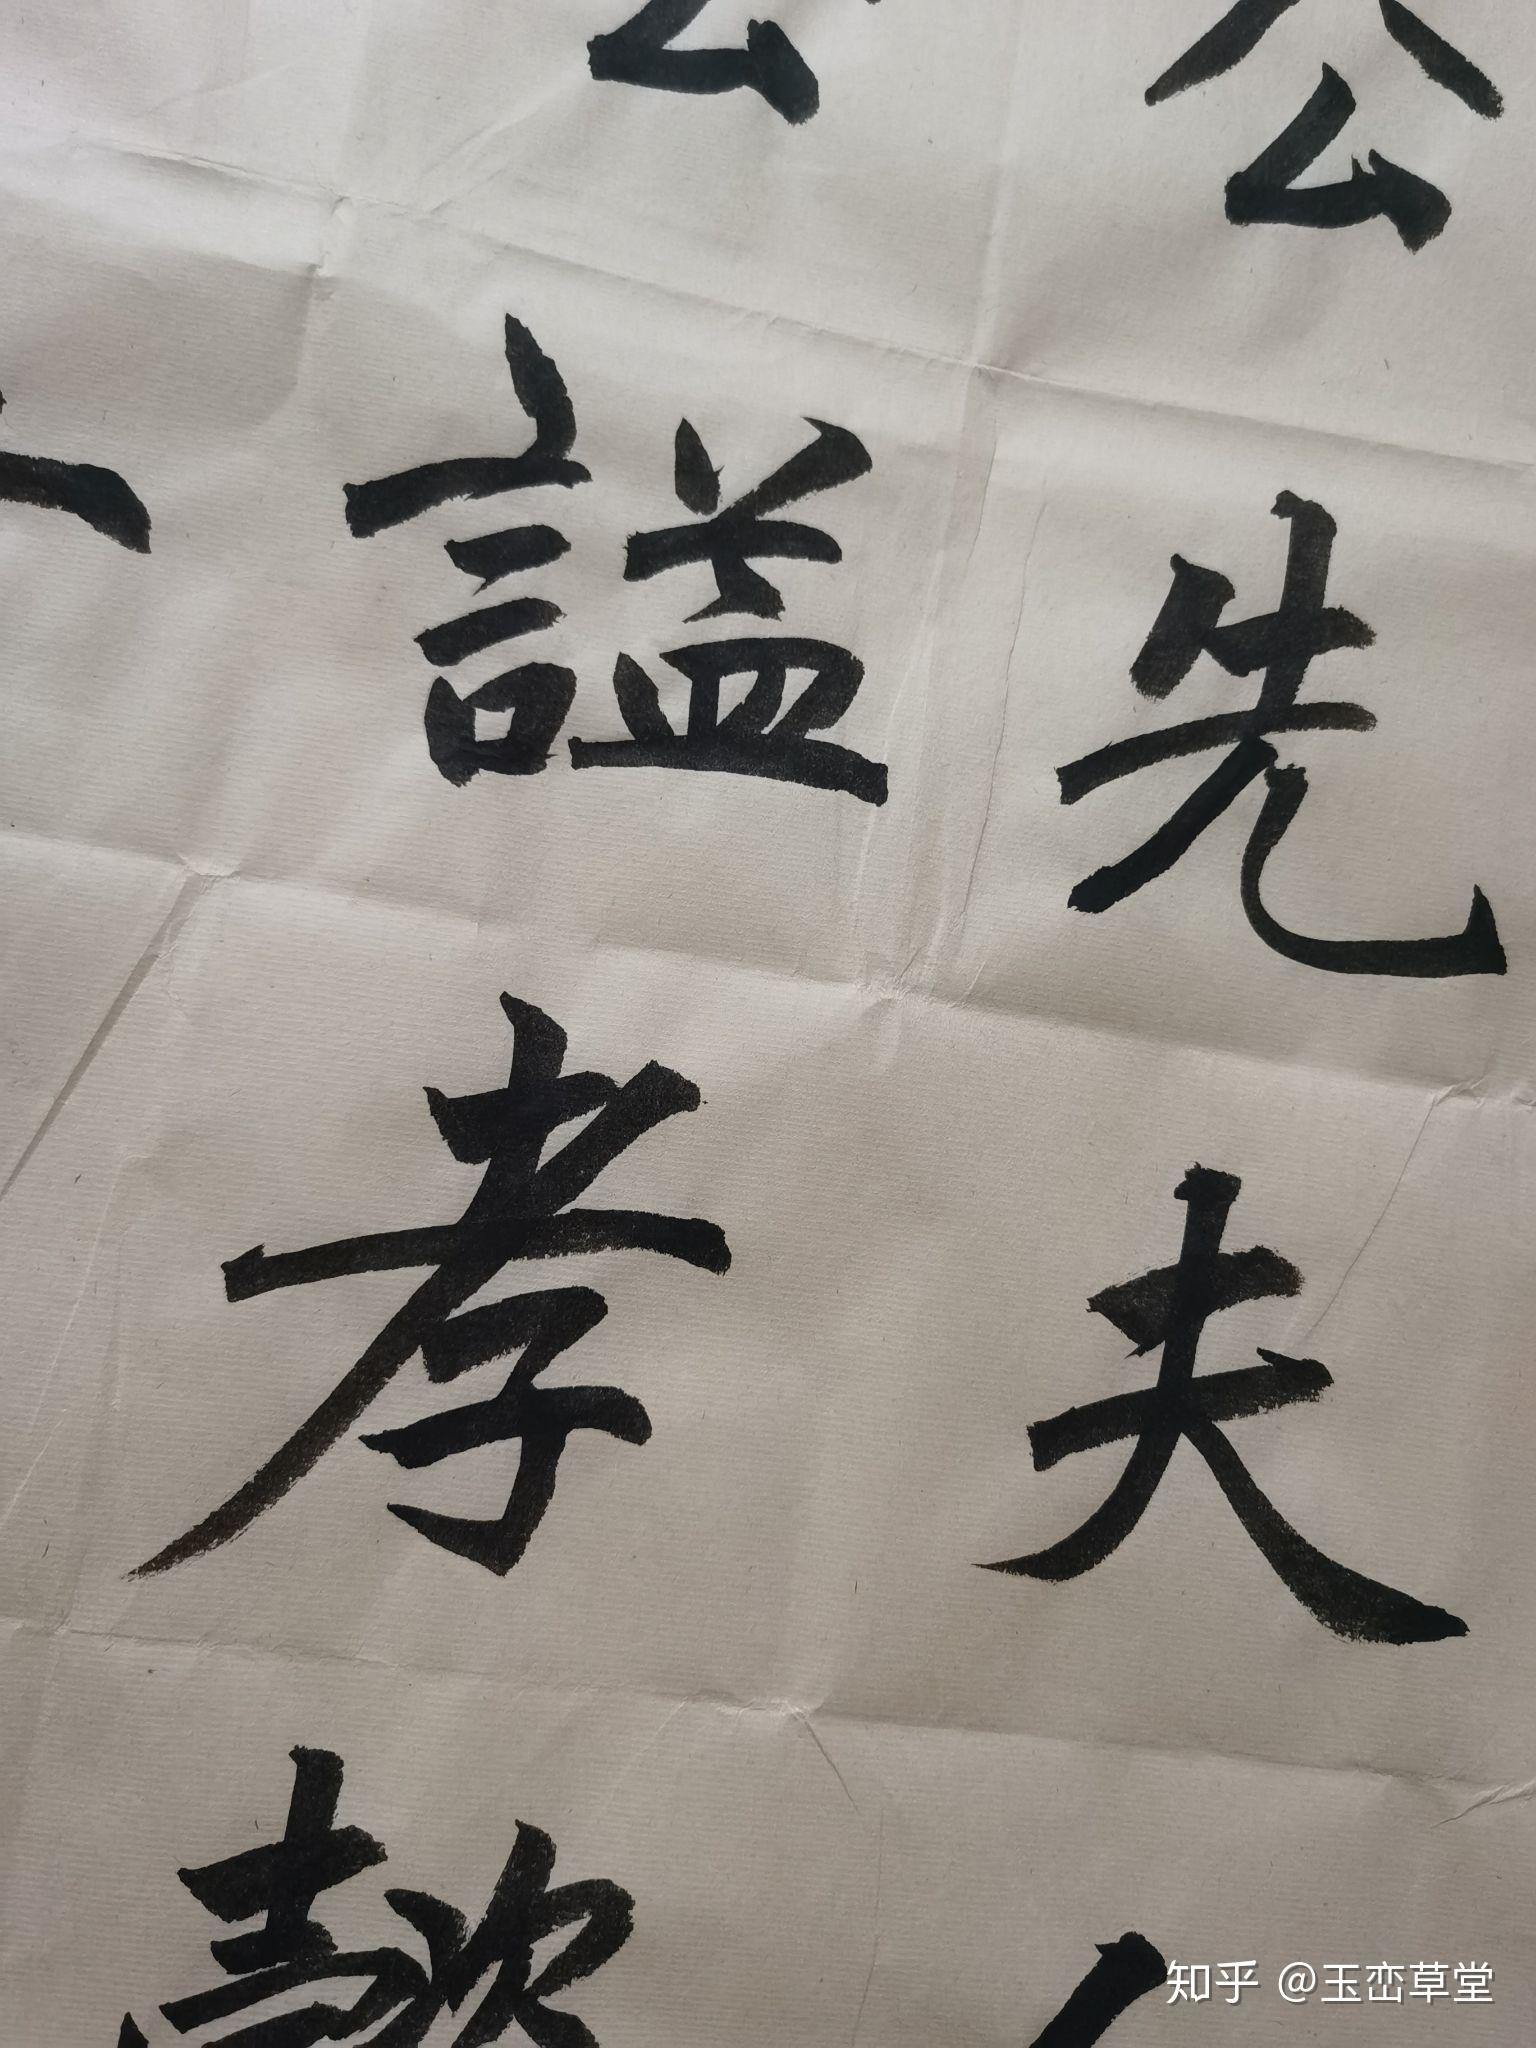 公先夫
公謚孝懿
知乎 @玉峦草堂